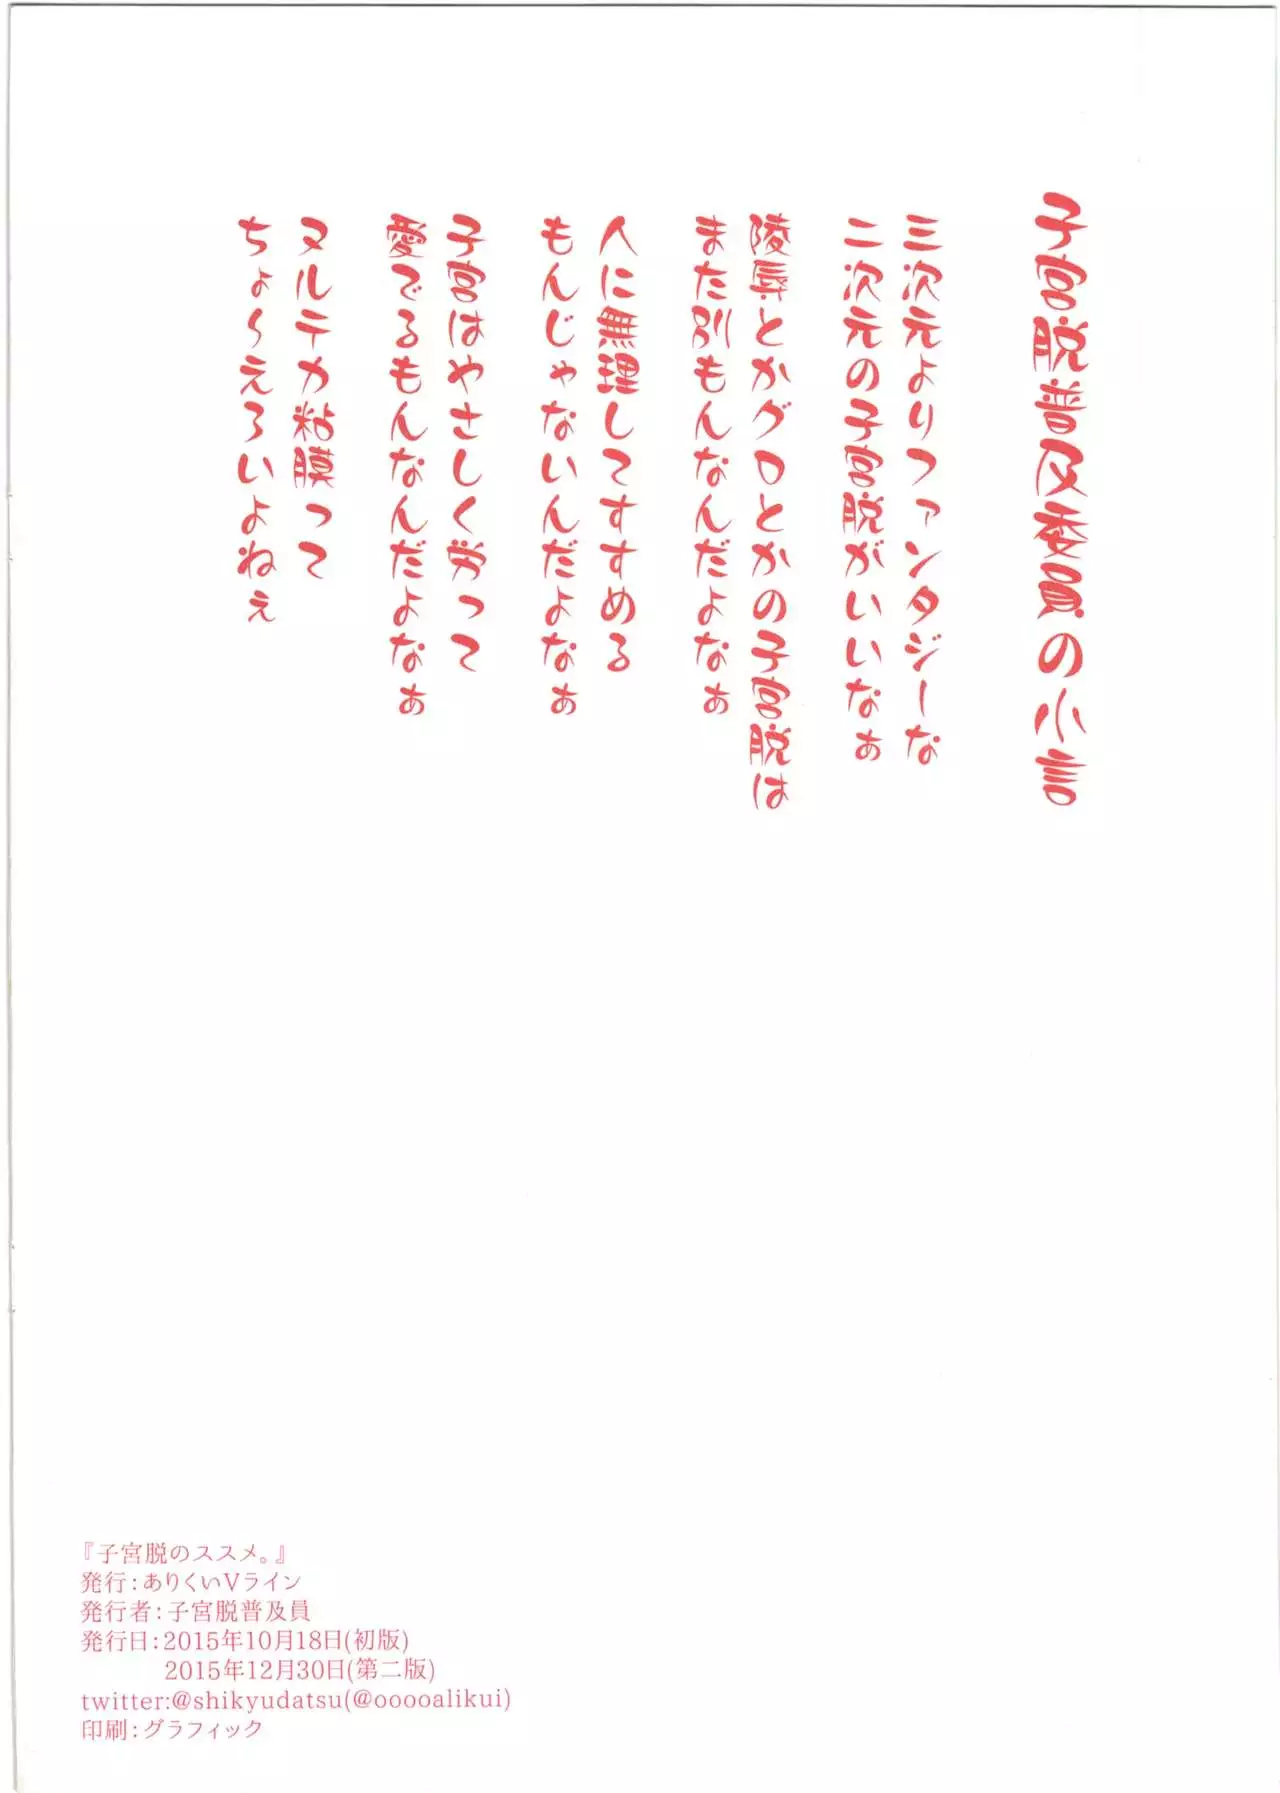 子宮脱普及委員の小言
三次元よりファンタジーな
二次元の子宮脱がいいなぁ
陵辱とかグロとかの子宮脱は
また別もんなんだよなぁ
人に無理してすすめる
もんじゃないんだよなぁ
子宮はやさしく労って
愛でるもんなんだよなぁ
ヌルテカ粘膜って
ちょ〜えろいよねぇ
『子宮脱のススメ。』
発行：ありくいVライン
発行者：子宮脱普及員
発行日：2015年10月18日(初版)
2015年12月30日(第二版)
twitter:@shikyudatsu(@ooooalikui)
印刷：グラフィック